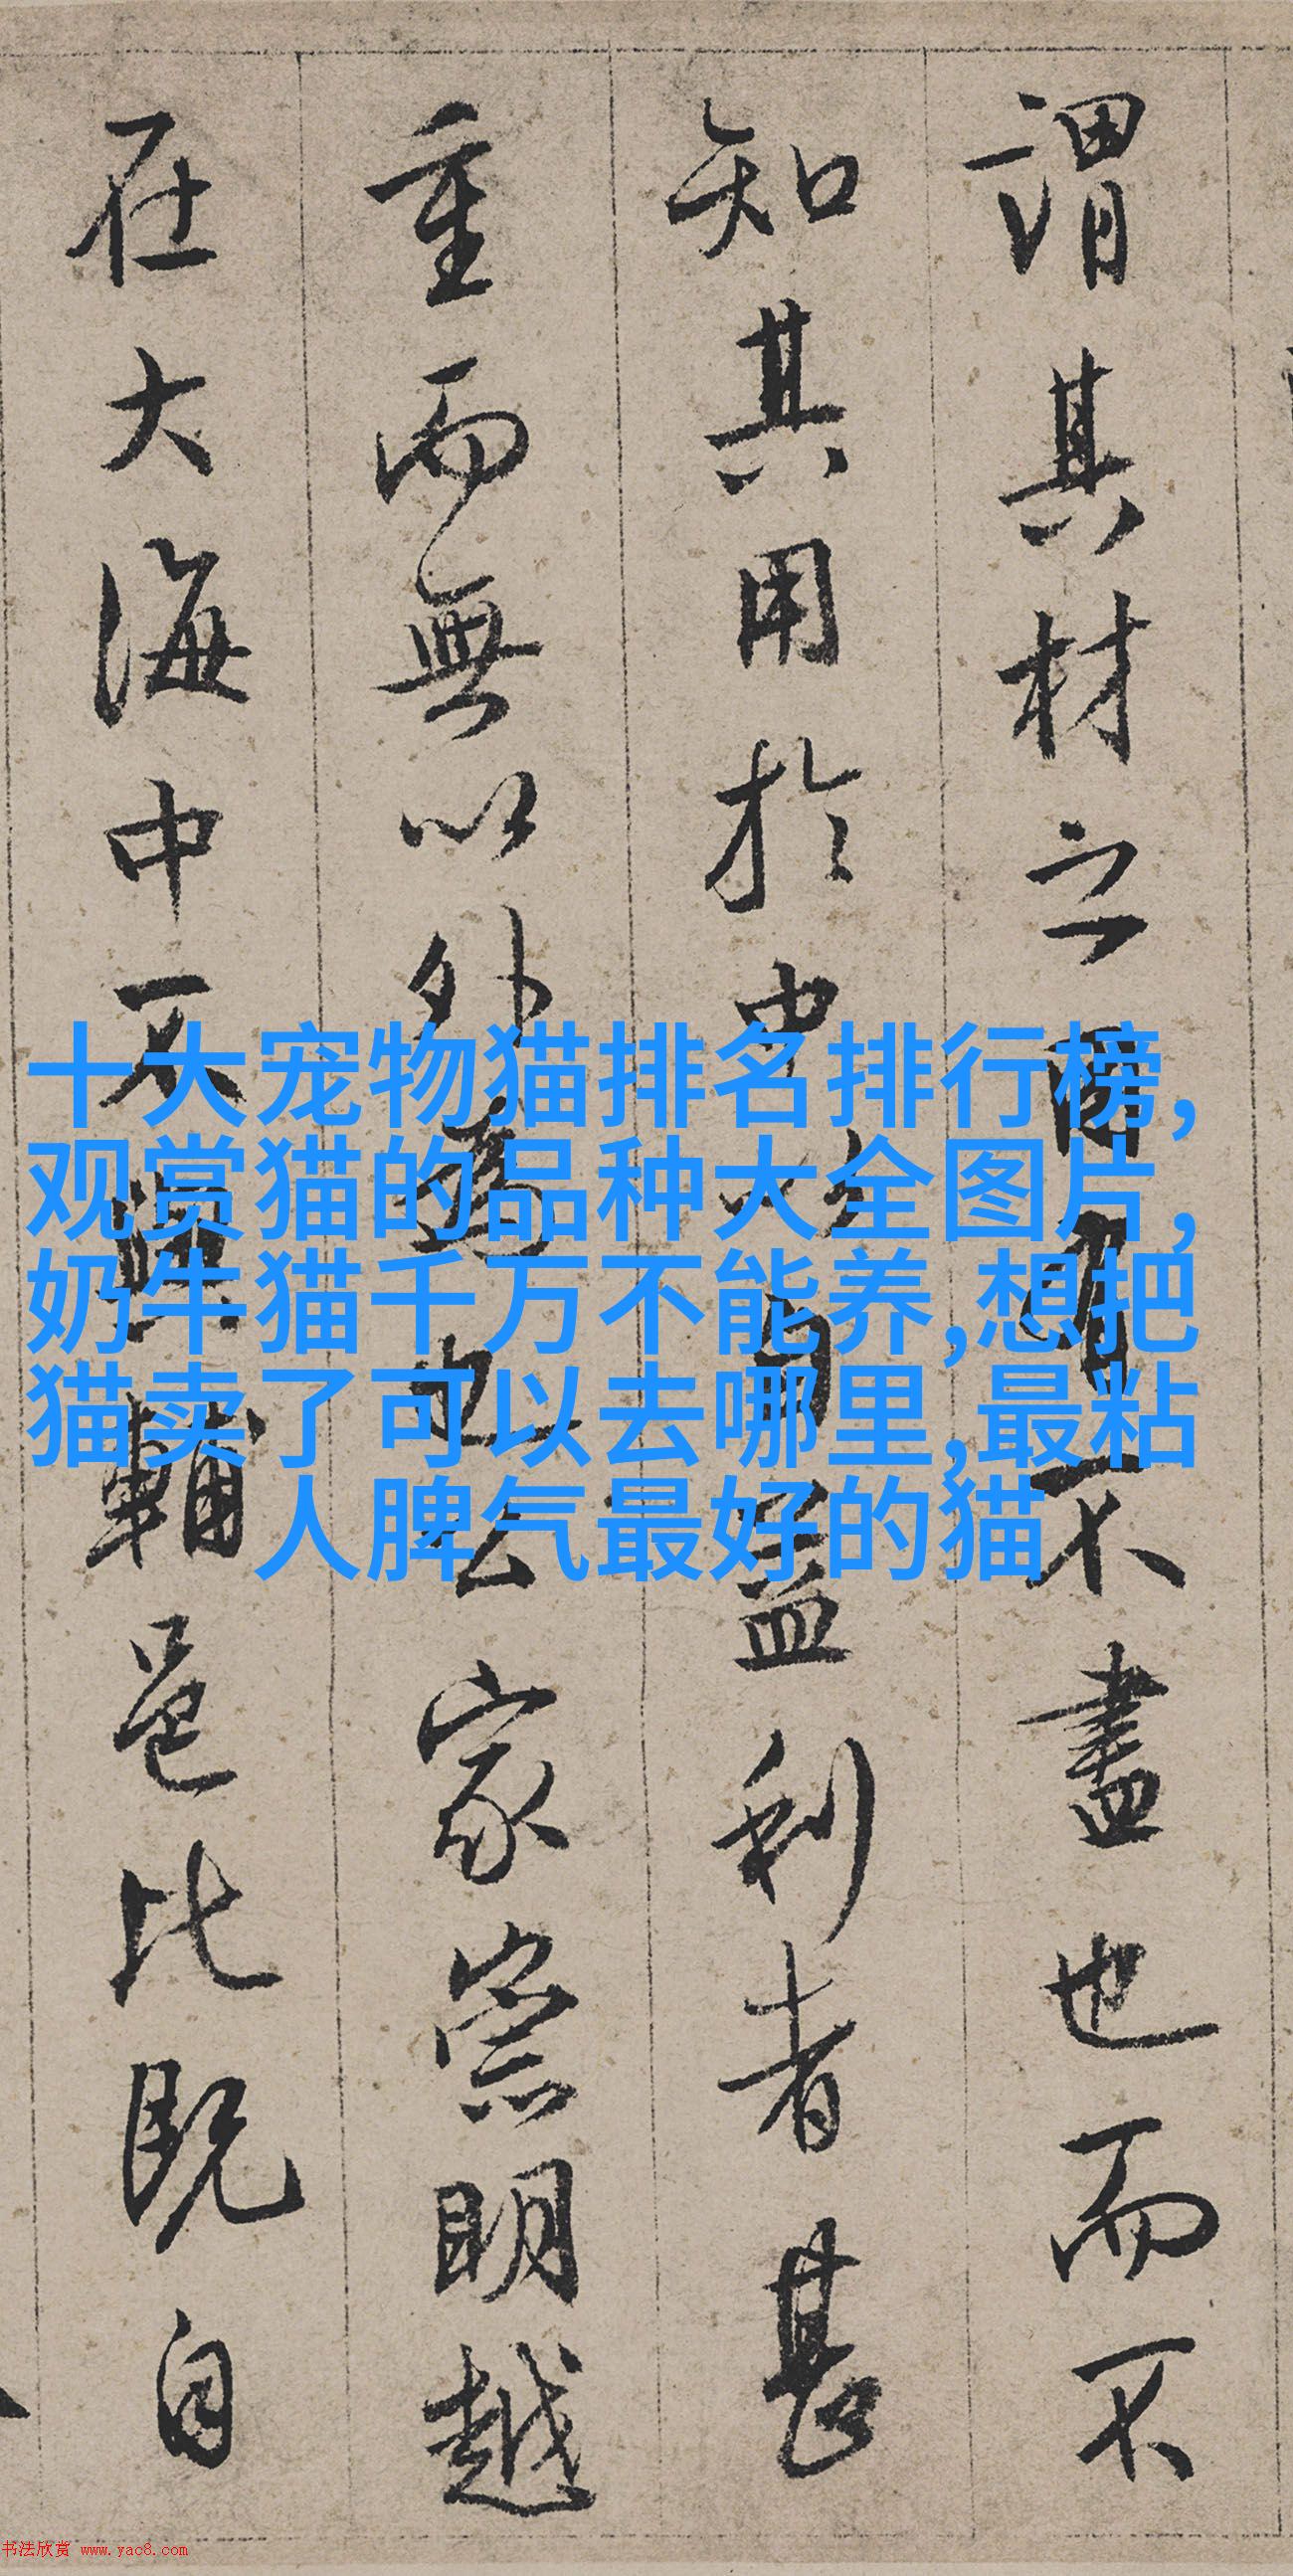 謂其材之不盡也而不
知其用於中益利者甚
重而無以外為也公家崇明越
在大海中不輔邑比既自
十大宠物猫排名排行榜,
观赏猫的品种大全图片,
奶牛猫千万不能养,想把
猫卖了可以去哪里,最粘
人脾气最好的猫
书法欣赏 www.yac8.com